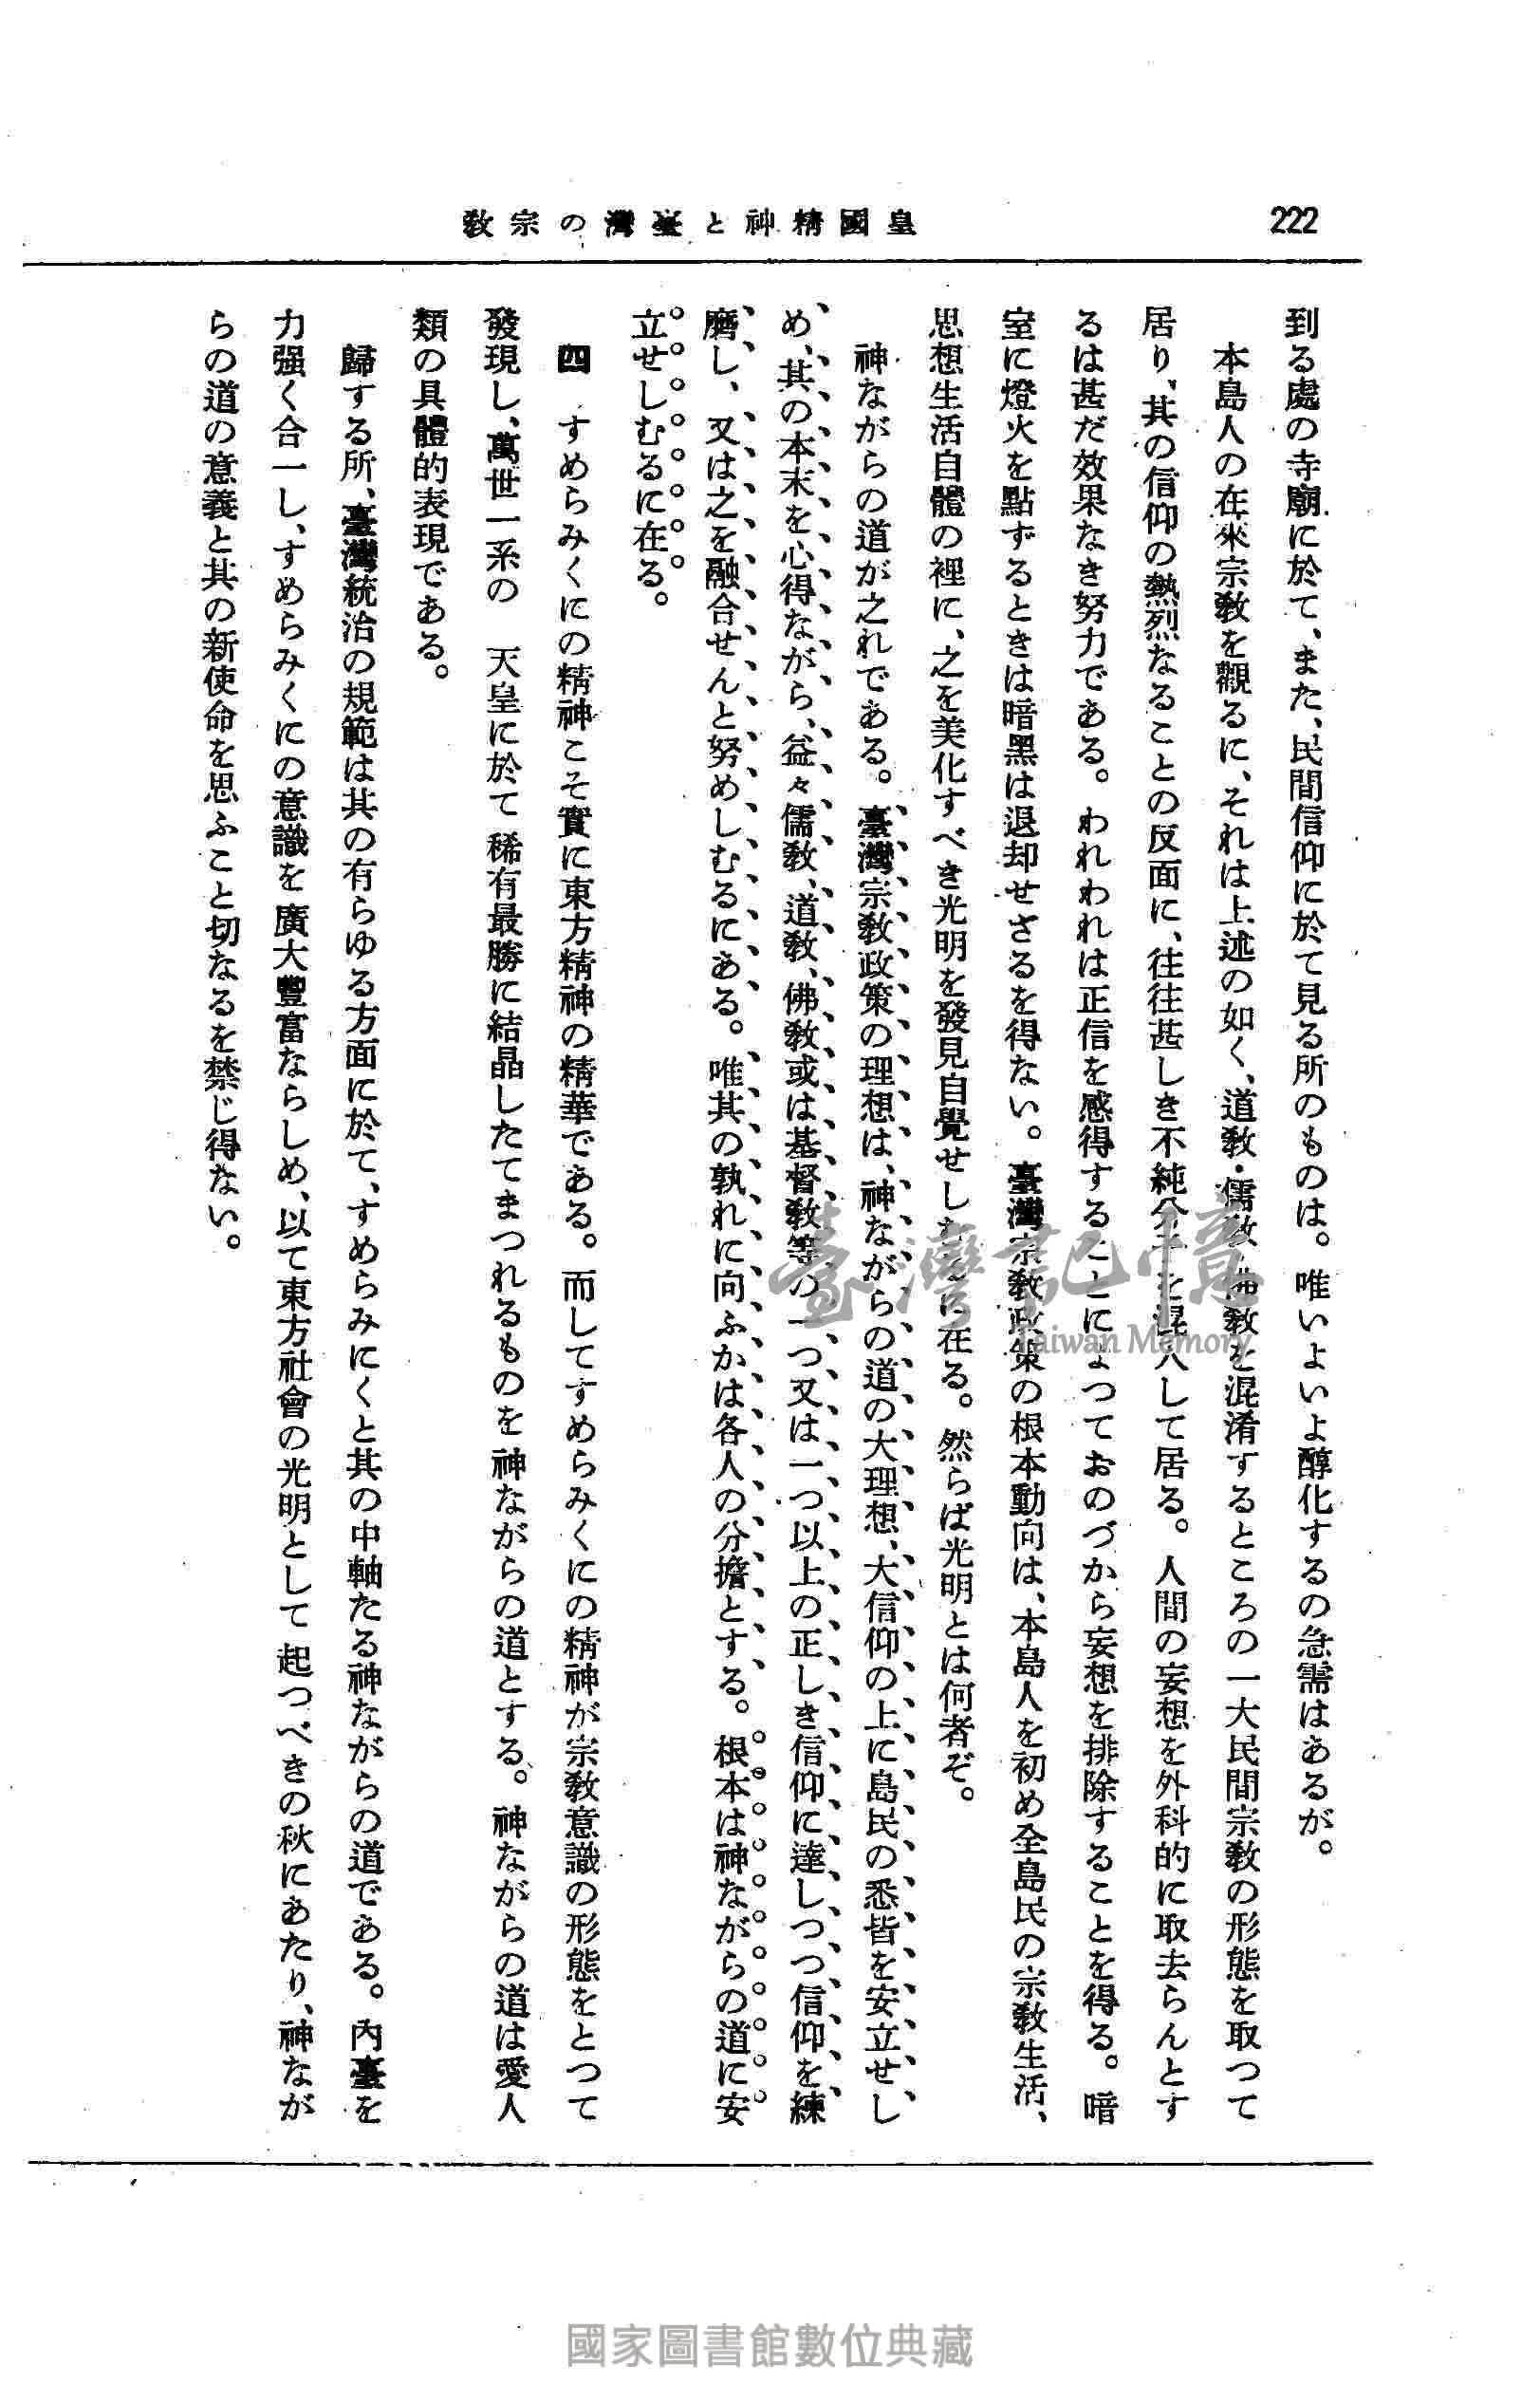 222
皇國精神と臺灣の宗教
到る處の寺廟に於て、また、民間信仰に於て見る所のものは。唯いよいよ醇化するの急需はあるが。
本島人の在來宗教を觀るに、それは上述の如く、道教・儒教・佛教を混淆するところの一大民間宗教の形態を取つて
居り、其の信仰の熱烈なることの反面に、往往甚しき不純分子を混入して居る。人間の妄想を外科的に取去らんとす
るは甚だ效果なき努力である。われわれは正信を感得することによつておのづから妄想を排除することを得る。暗
室に燈火を點ずるときは暗黑は退却せざるを得ない。臺灣宗教政策の根本動向は、本島人を初め全島民の宗教生活、
思想生活自體の裡に、之を美化すべき光明を發見自覺せしむるに在る。然らば光明とは何者ぞ。
神ながらの道が之れである。臺灣宗教政策の理想は、神ながらの道の大理想、大信仰の上に島民の悉皆を安立せし
め、其の本末を心得ながら、益々儒教、道教、佛教或は基督教等の一つ又は一つ以上の正しき信仰に達しつつ信仰を練
磨し、又は之を融合せんと努めしむるにある。唯其の孰れに向ふかは各人の分擔とする。根本は神ながらの道に安
立せしむるに在る。
四 すめらみくにの精神こそ實に東方精神の精華である。而してすめらみくにの精神が宗教意識の形態をとつて
發現し、萬世一系の 天皇に於て稀有最勝に結晶したてまつれるものを神ながらの道とする。神ながらの道は愛人
類の具體的表現である。
歸する所、臺灣統治の規範は其の有らゆる方面に於て、すめらみにくと其の中軸たる神ながらの道である。內臺を
力强く合一し、すめらみくにの意識を廣大豐富ならしめ、以て東方社會の光明として起つべきの秋にあたり、神なが
らの道の意義と其の新使命を思ふこと切なるを禁じ得ない。
臺灣記憶
Taiwan Memory
國家圖書館數位典藏